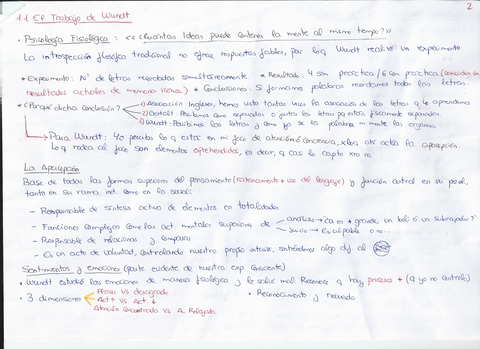 2
1.1 El Trabajo de Wundt
• Psicología Fisiológica: <<¿Cuántas Ideas puede contener la mente al mismo tiempo?>>
La introspección filosófica tradicional no ofrece respuestas fiables, por lo q Wundt realizó un experimento
* Experimento: Nº de letras recordadas simultáneamente * Resultado: 4 sin práctica / 6 con práctica (coinciden con
resultados actuales de memoria icónica) * Conclusiones: Si formamos palabras recordamos todas las letras.
• ¿Porqué dicha conclusión? 1) Asociación Inglesa: hemos visto tantas veces la asociación de las letras q le aprendemos
2) Gestalt: Percibimos que separadas o juntas las letras pq están físicamente separadas.
3) Wundt: Percibimos las letras y como ya se la palabra, mi mente las organiza
Para Wundt: Yo percibo lo q está en mi foco de atención ó conciencia, xlo q ahí actúa la apercepción.
Lo q rodea al foco son elementos aprehendidos, es decir, q casi lo capto xro no.
La Apercepción
Base de todas las formas superiores del pensamiento (razonamiento + uso del lenguaje) y función central en su psicol,
tanto en su rama ind. como en la social:
– Responsable de síntesis activa de elementos en totalidades
– Funciones complejas como las act mentales superiores de análisis → ¿q es + grande, un boli o un subrayador?
juicio → Es culpable o no...
– Responsable de relacionar y comparar
– Es un acto de voluntad, controlando nuestro propio interior, sintiéndonos algo dif. al
Sentimientos y emociones (parte evidente de nuestra exp. consciente)
• Wundt estudió las emociones de manera fisiológica y le salió mal. Reconoce q hay procesos + (q yo no controlo)
• 3 dimensiones Placer vs desagrado • Reconocimiento y recuerdo
Act ↑ vs Act ↓
Atención Concentrada vs A. Relajada